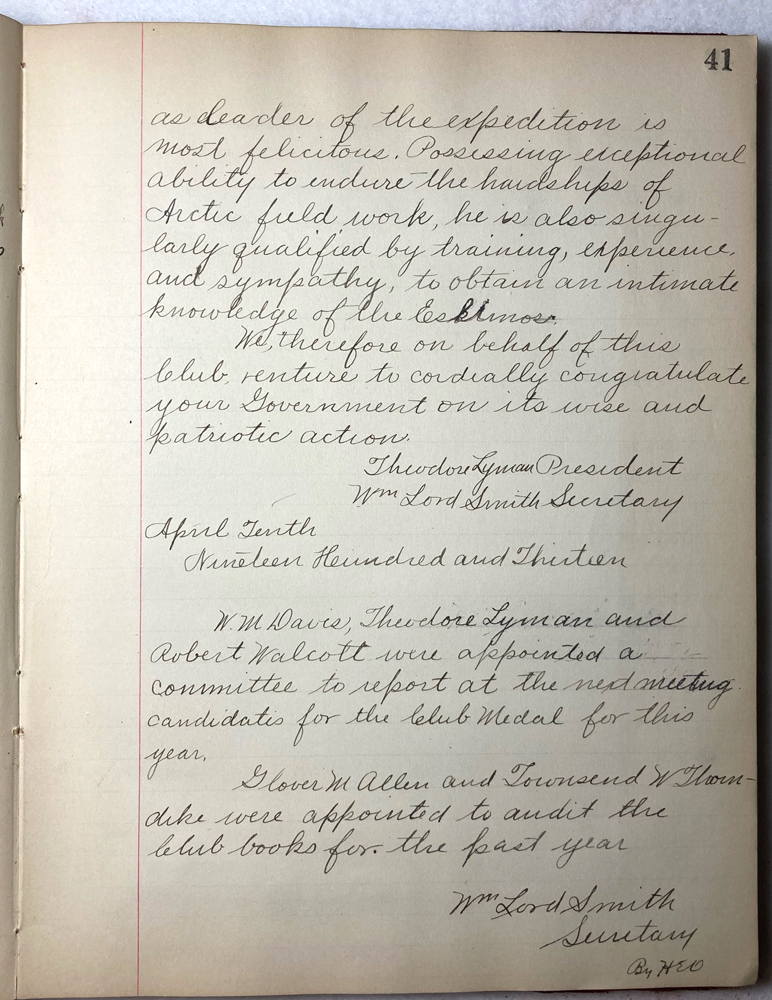 41
as leader of the expedition is
most felicitous. Possessing exceptional
ability to endure the hardships of
Arctic field work, he is also singu-
larly qualified by training, experience,
and sympathy, to obtain an intimate
knowledge of the Eskimos.
We, therefore on behalf of this
Club, venture to cordially congratulate
your Government on its wise and
patriotic action.
Theodore Lyman President
Wm Lord Smith Secretary
April Tenth
Nineteen Hundred and Thirteen
W. M Davis, Theodore Lyman and
Robert Walcott were appointed a
committee to report at the next meeting
candidates for the Club Medal for this
year.
Glover M Allen and Townsend W Thorn-
dike were appointed to audit the
Club books for the past year
Wm Lord Smith
Secretary
By HEO